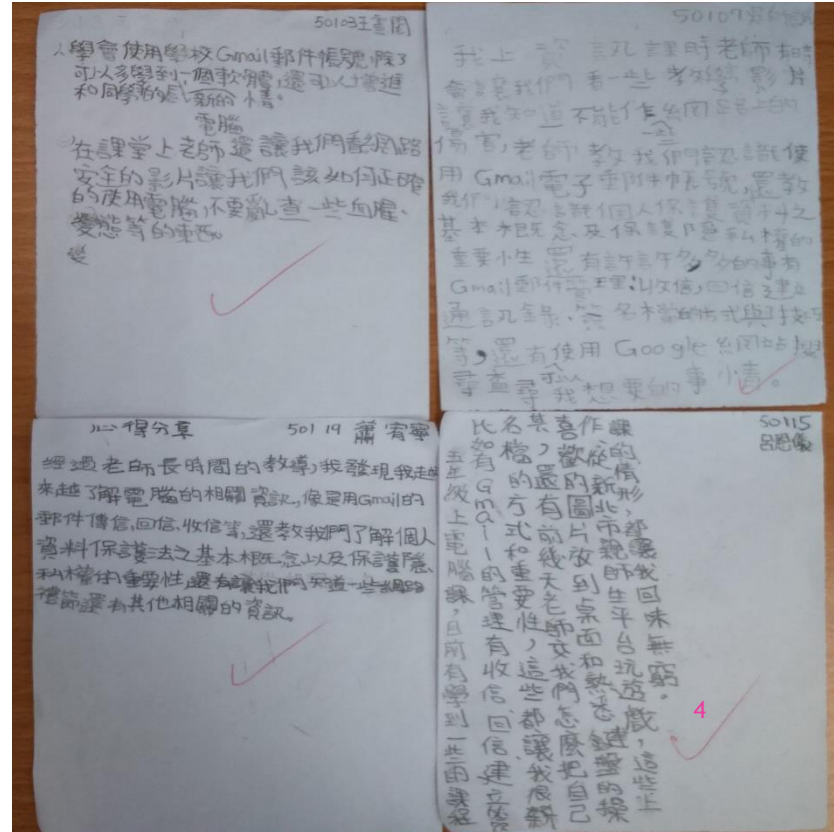 50103王
人學會使用學校Gmail郵件帳號,除了
可以多學到一個軟體,還可以增進
和同學的感 新的 情。
電腦
在課堂上老師還讓我們看網路
安全的影片讓我們該如何正確
的使用電腦,不要亂查一些血腥、
變態等的東西。
50107
我上資訊課時老師有時
會讓我們看一些教學影片
讓我知道不能作網路上的
傷害,老師教我們認識使
用Gmail電子郵件帳號,還教
我們認識個人保護資料之
基本概念及保護隱私權的
重要性還有許許多多的事有
Gmail郵件管理:收信,回信建立
通訊錄、簽名檔的方式與技巧
等,還有使用Google網站搜
尋查尋可以我想要的事情。
心得分享 50119 蕭宥寧
經過老師長時間的教導,我發現我越
來越了解電腦的相關資訊,像是用Gmail的
郵件傳信,回信、收信等,還教我們了解個人
資料保護法之基本概念以及保護隱
私權的重要性,還有讓我們知道一些網路
禮節還有其他相關的資訊。
50115
呂恩儀
五年級上電腦課,目前有學到一些面課程
比如有Gmail的管理有收信、回信建立簽
名檔的方式和重要性,這些都讓我很
其,還有前幾天老師交我們怎麼把自己
喜歡的圖片放到桌面和熟悉鍵盤的操
作從新北市親師生平台玩遊戲,這些上
課的情形,都讓我回味無窮。
4